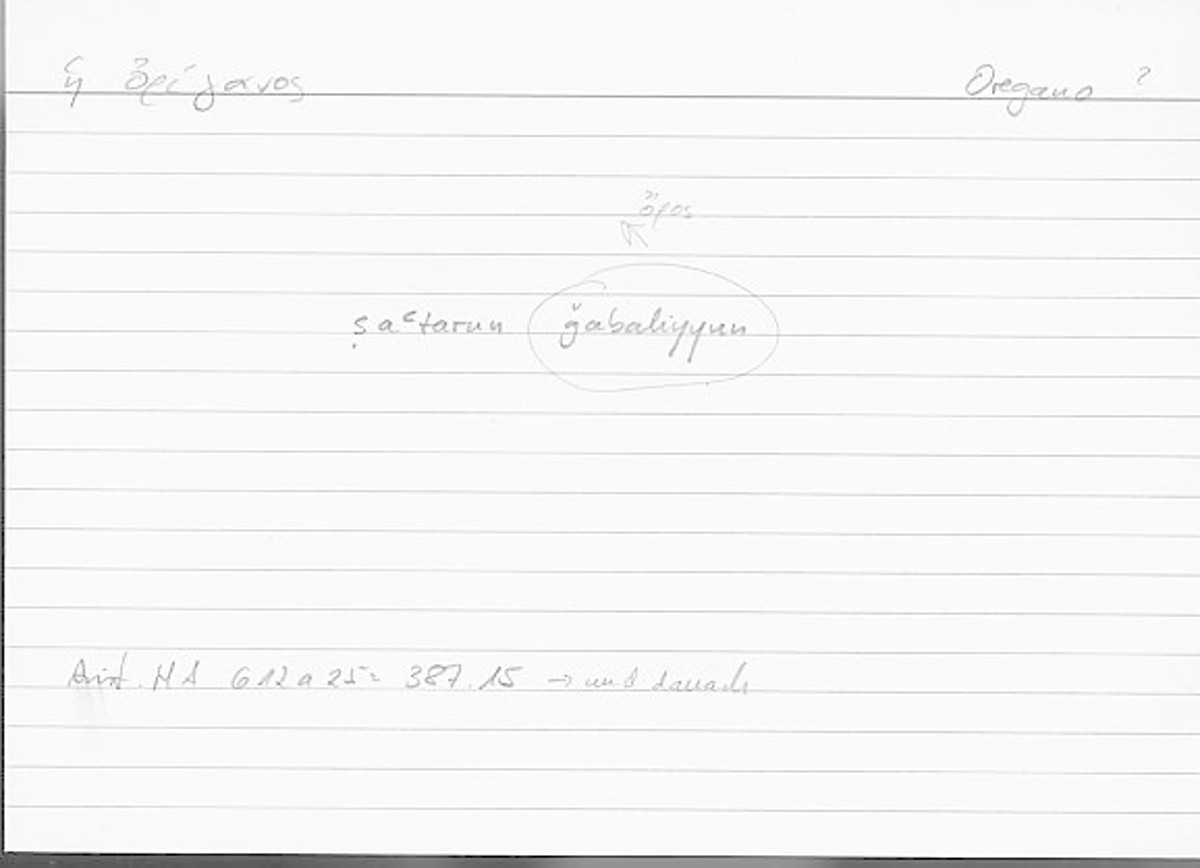 ἡ ὀρίγανος Oregano ?
ὄρος
ṣaʿtarun ǧabaliyyun
Arist. HA 612a25 = 387.15 → und danach